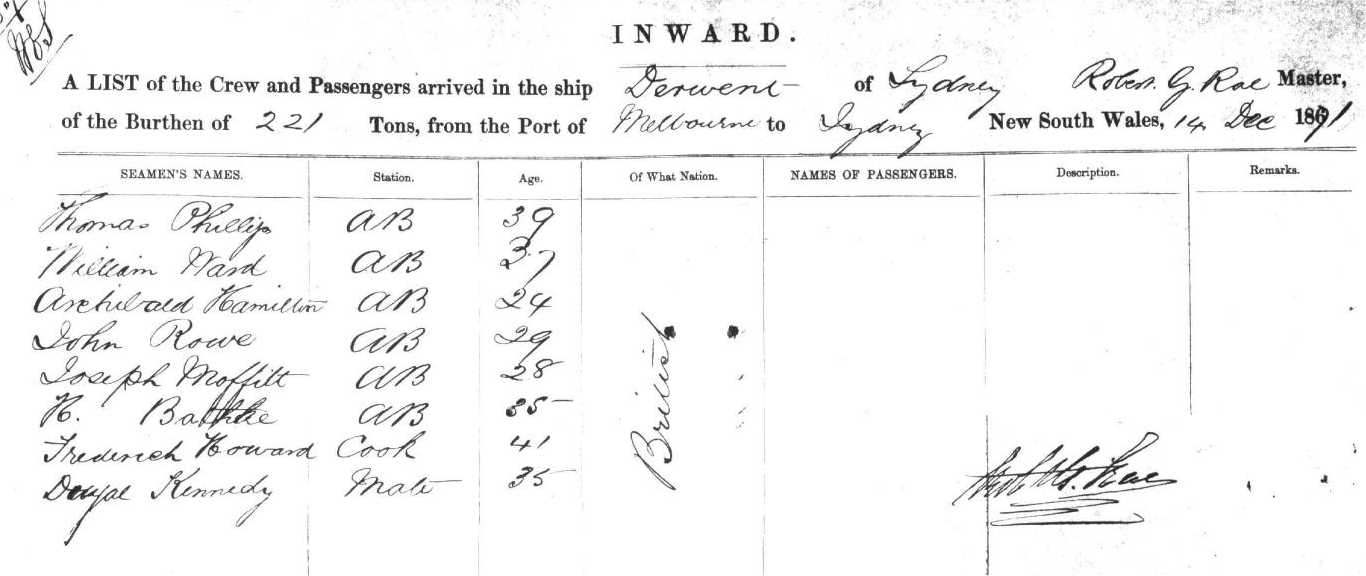 INWARD.
A LIST of the Crew and Passengers arrived in the ship Derwent of Sydney Robert G. Rae Master,
of the Burthen of 221 Tons, from the Port of Melbourne to Sydney New South Wales, 14 Dec 1891
SEAMEN'S NAMES. Station. Age. Of What Nation. NAMES OF PASSENGERS. Description. Remarks.
Thomas Phillips AB 39
William Ward AB 37
Archibald Hamilton AB 24
John Rowe AB 29
Joseph Moffitt AB 28
H. AB 35
Frederick Howard Cook 41
Kennedy Mate 35
British